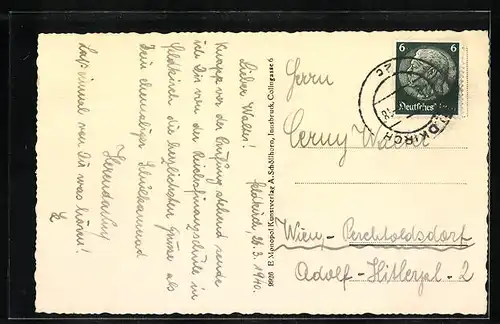 Feldkirch, 26.3.1940.
Lieber Walter!
Knapp vor der Prüfung stehend sende
ich Dir von der Reichsfinanzschule in
Feldkirch die herzlichsten Grüße als
Dein ehemaliger Schulkamerad
Laß einmal von Dir was hören!
9926 E Monopol Kunstverlag A. Schöllhorn, Innsbruck, Colingasse 6
6 6
Deutsches
FELDKIRCH
Herrn
Cerny Walter
Wien - Perchtoldsdorf
Adolf-Hitlerpl-2